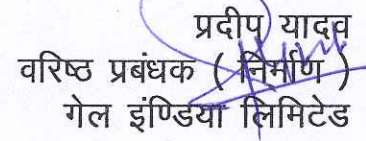 प्रदीप यादव
वरिष्ठ प्रबंधक ( निर्माण )
गेल इंण्डिया लिमिटेड